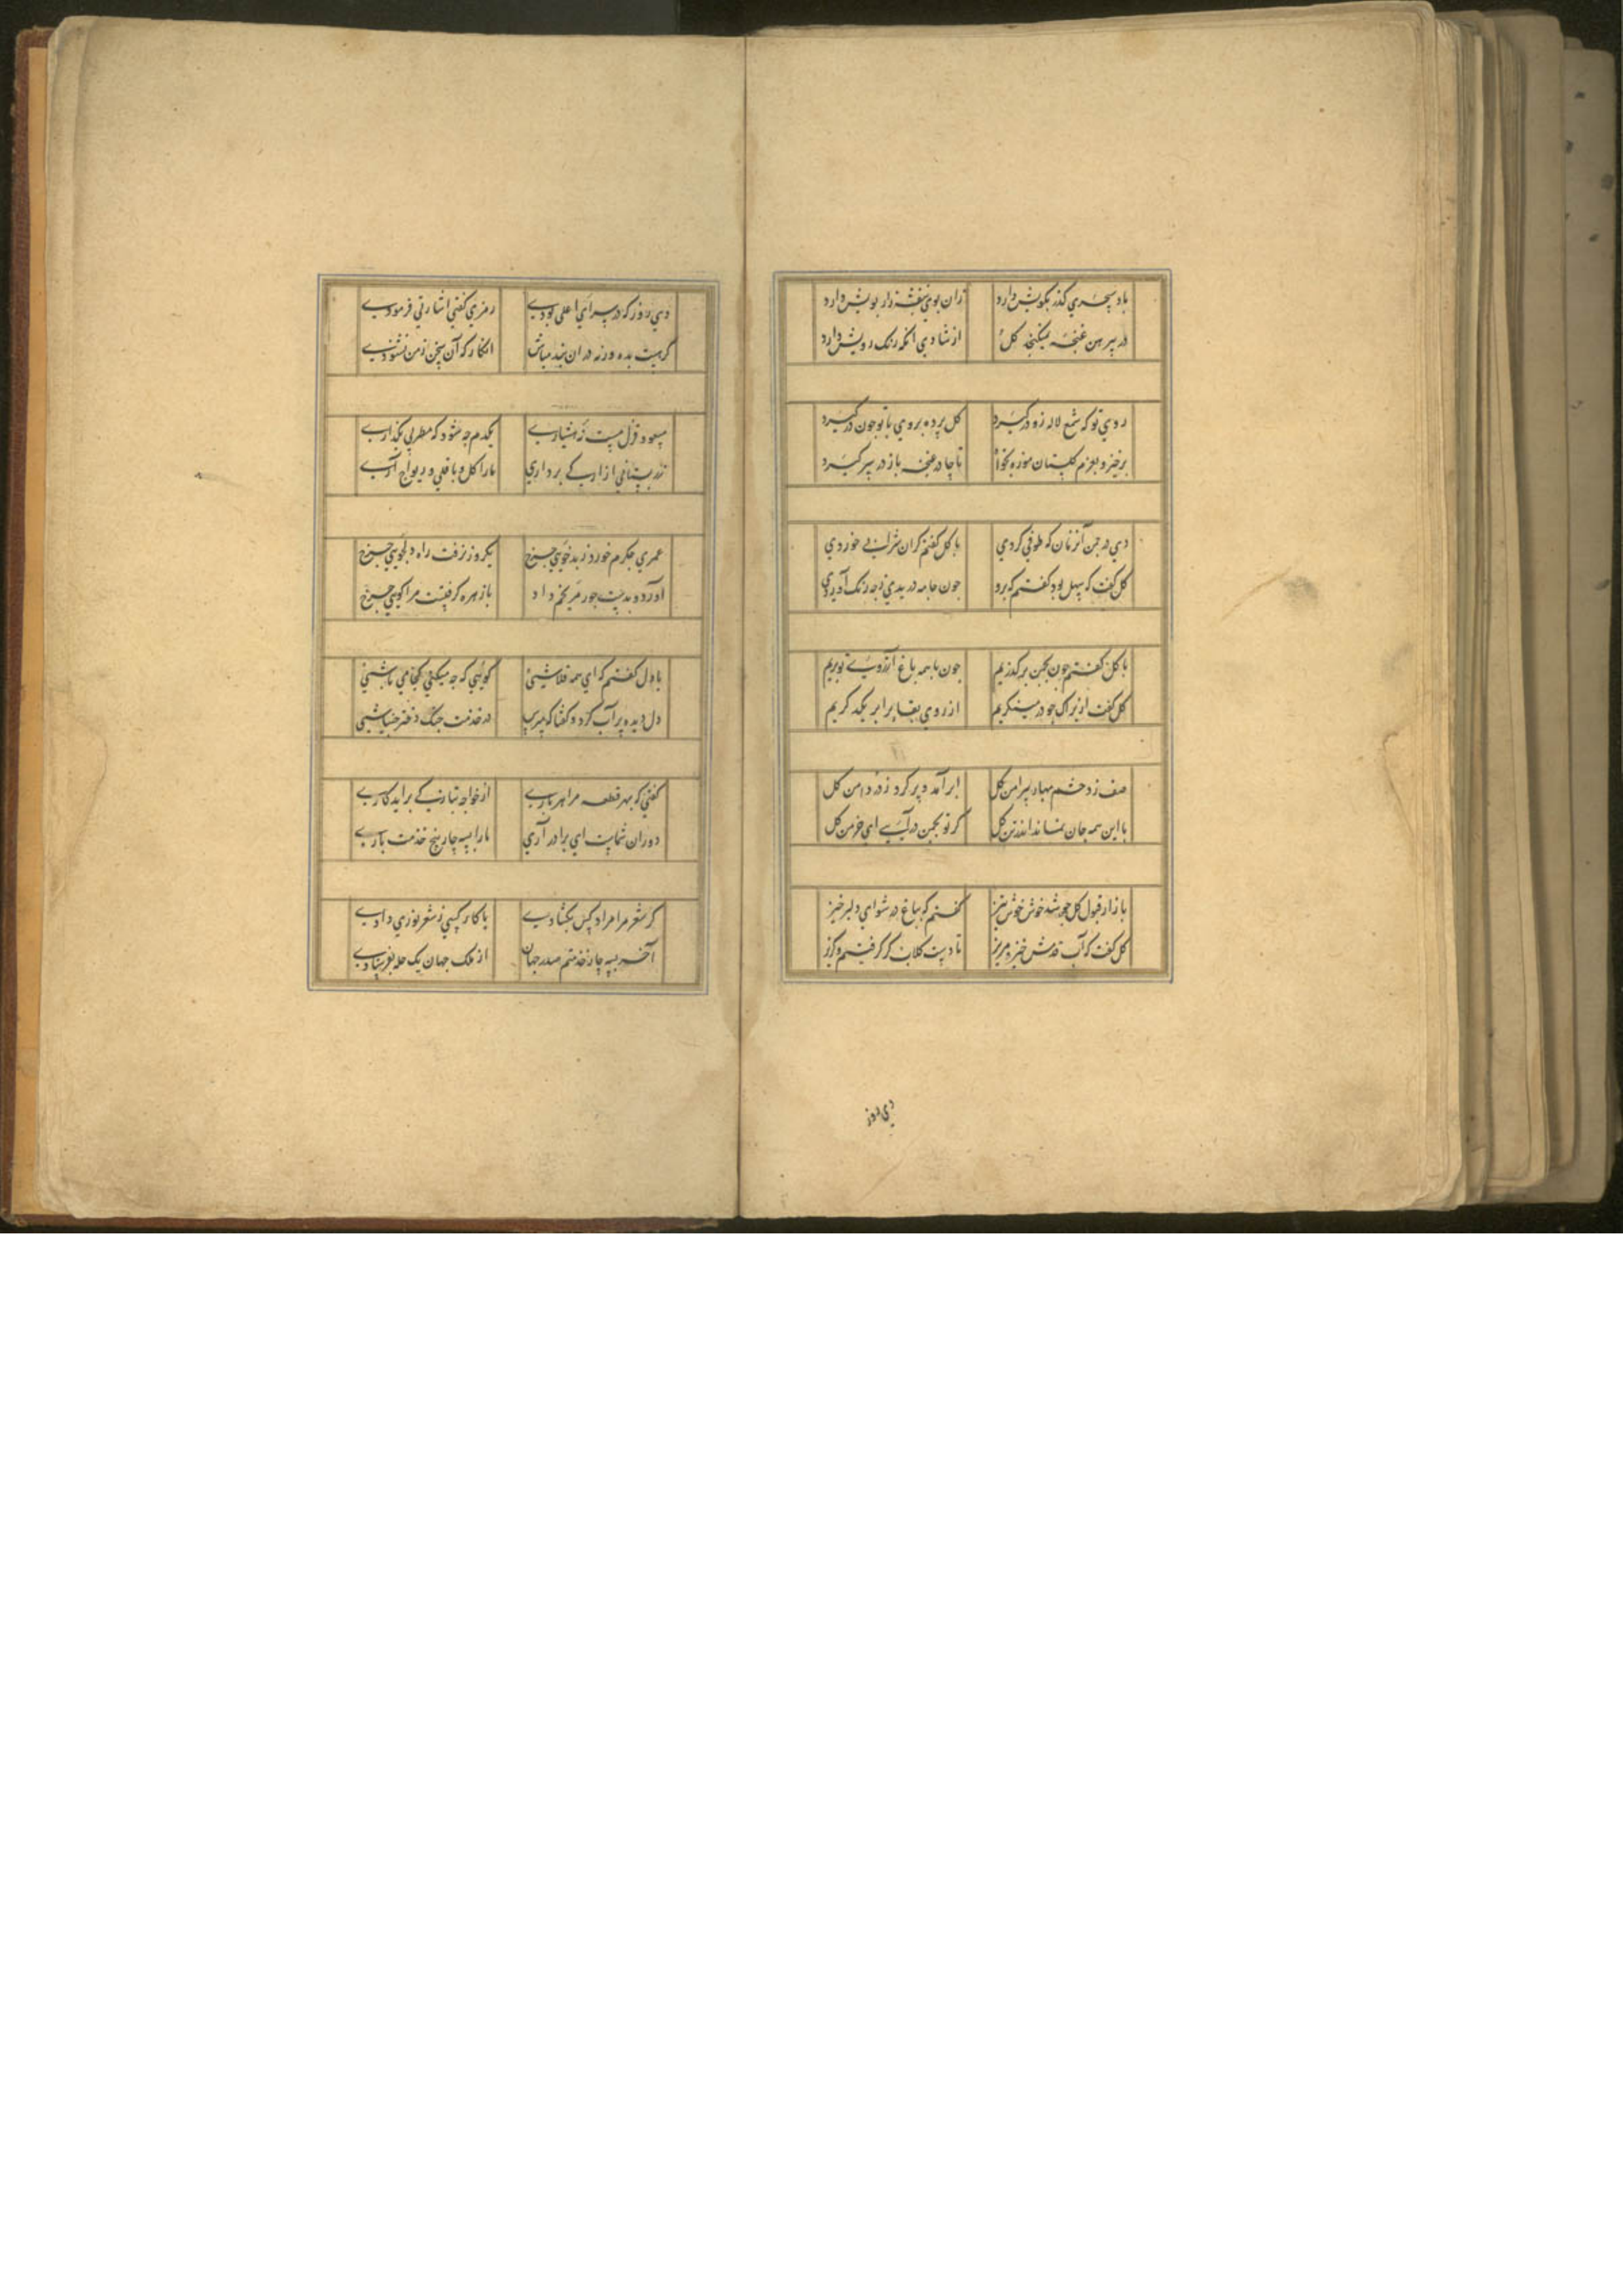 باد سحری گذر بکویش دارد زان بوی بنفشه زار بویش دارد
در پیرهن غنچه نمیکنجد کل از شادی آنکه رنک رویش دارد
روی تو که شمع لاله زو درکیرد کل پرده بروی با تو چون درکیرد
برخیز و بعزم کلستان موزه بخواه تا چادر غنچه باز در سر کیرد
دی در چمن آن زمان که طوفی کردی با کل کفتم کزان شراب خوردی
کل کفت که سهل بود کفتم که برو چون جامه دریدی ز چه رنک آوردی
با کل کفتم چون بچمن برکذریم چون با همه باغ آرزوی تو بریم
کل کفت از روی بقا برابر یکدکریم
صف زد حشم بهار پیرامن کل ابر آمد و پر کرد ز در دامن کل
با این همه جان نماند اندر تن کل کر تو بچمن درآیی ای خرمن کل
بازار قبول کل چو شد خوش خوش تیز کفتم که بباغ در شو ای دلبر خیز
کل کفت که آب قدمش خیره مریز تا دست کلاب کر کرفتیم و کریز
دی روز
دی روز که در سرای اعلی بودی رمزی کفتی اشارتی فرمودی
کر هست بده ورنه در آن بند مباش انکار که آن سخن ز من نشنودی
یکدم چه شود که مطربی بکذاری
ما را کل و باقلی و ریواج آری
عمری جکرم خورد ز بدخویی چرخ یکروز نرفت راه دلجویی چرخ
آورد و بدست جور مریخم داد با زهره کرفتست مرا کویی چرخ
با دل کفتم که ای همه قلاشی کویی که چه میکنی کجا می باشی
دل دیده پر آب کرد و کفتا که مپرس در خدمت
کفتی که بهر قطعه مرا هر باری از خواجه بتازکی برآید کاری
دوران شماست ای برادر آری ما را سه چار پنج خدمت باری
کر شعر مرا مراد کس بکشادی یا کار کسی ز شعر نوری دادی
آخر سه چار خدمتم صدر جهان از ملک جهان یک حله بفرستادی